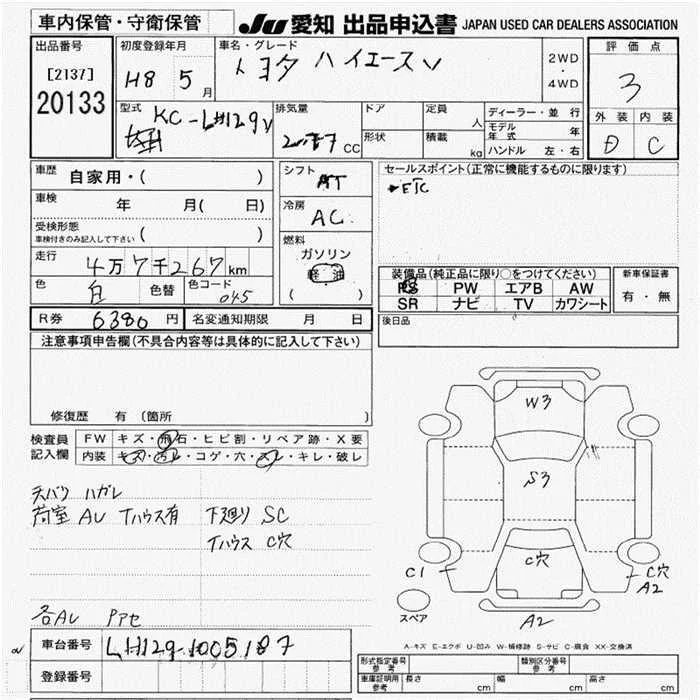 車内保管・守衛保管
JU 愛知 出品申込書 JAPAN USED CAR DEALERS ASSOCIATION
出品番号
[2137]
20133
初度登録年月
H8 5月
車名・グレード
トヨタ ハイエースV
2WD
・
4WD
評価点
3
外装 内装
D C
型式
KC-LH129V
排気量
CC
ドア
形状
定員
人
積載
kg
ディーラー・並行
モデル年式 年
ハンドル 左・右
車歴
自家用・( )
車検
年 月( 日)
受検形態
車検付きのみ記入して下さい ( )
走行
4万7千267km
色
白
色替
色コード
045
シフト
AT
冷房
AC
燃料
ガソリン
軽油
( )
セールスポイント(正常に機能するものに限ります)
ETC
装備品(純正品に限り○をつけてください)
PS PW エアB AW
SR ナビ TV カワシート
新車保証書
有・無
後日品
R券 6380円
名変通知期限 月 日
注意事項申告欄(不具合内容等は具体的に記入して下さい)
修復歴 有 (箇所 )
検査員
記入欄
FW キズ・飛石・ヒビ割・リペア跡・X要
内装 キズ・汚レ・コゲ・穴・スレ・キレ・破レ
天バリ ハガレ
荷室 AU Tハウス有 下廻り SC
Tハウス C穴
各AU PアセW3
S3
C穴
C1
C穴
A2
スペア
A2
A-キズ E-エクボ U-凹み W-補修跡 S-サビ C-腐食 XX-交換済
車台番号
LH129-1005187
登録番号
型式指定番号
参考
類別区分番号
参考
車庫証明用
参考
長さ cm
幅 cm
高さ cm